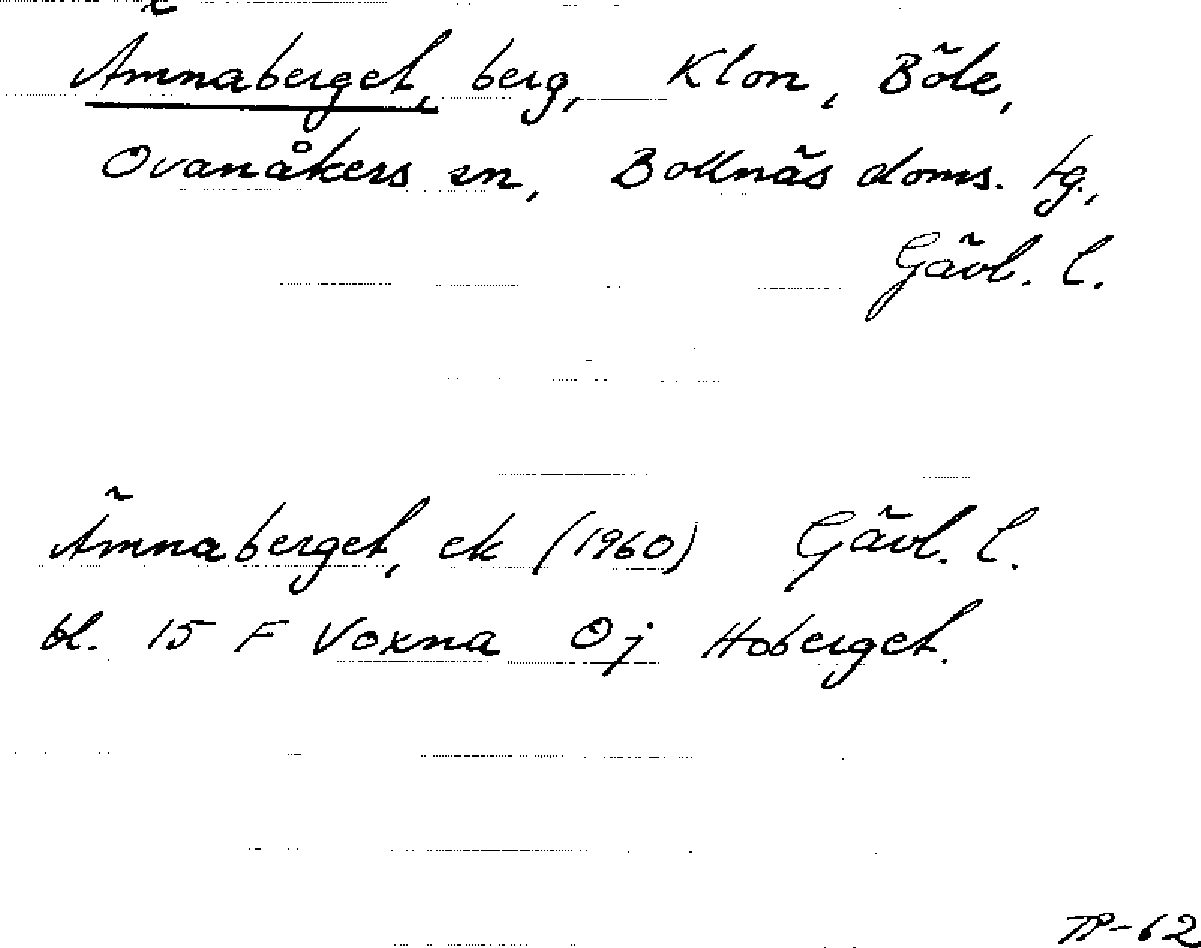 Ämnaberget, berg, Klon, Böle,
Ovanåkers sn, Bollnäs doms. tg.,
Gävl. l.
Ämnaberget, ek (1960) Gävl. l.
bl. 15 F Voxna Oj Hoberget.
TP-62